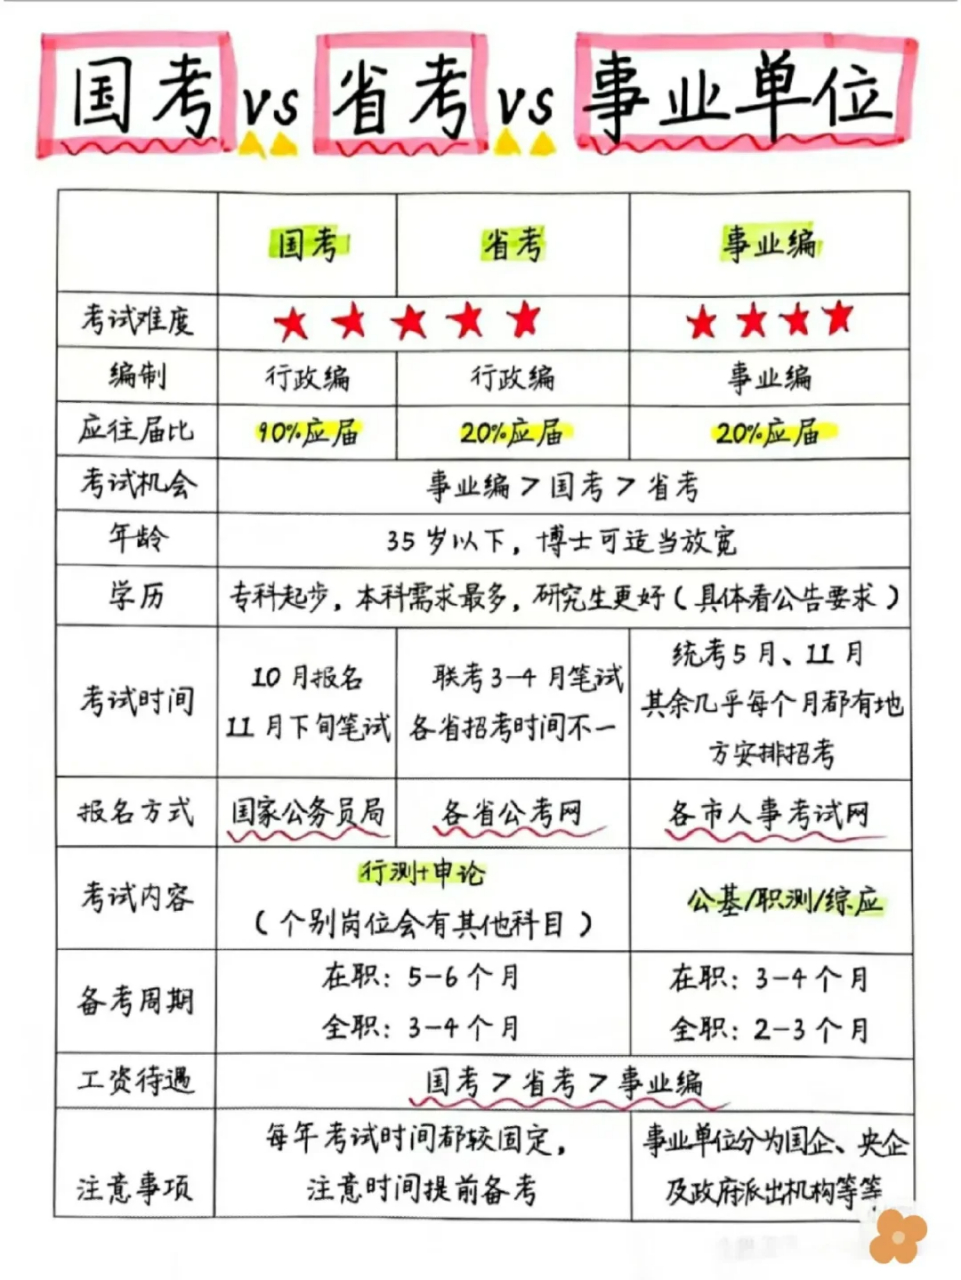 国考 vs 省考 vs 事业单位
国考 省考 事业编
考试难度 ★★★★★ ★★★★
编制 行政编 行政编 事业编
应往届比 90%应届 20%应届 20%应届
考试机会 事业编>国考>省考
年龄 35岁以下，博士可适当放宽
学历 专科起步，本科需求最多，研究生更好（具体看公告要求）
考试时间
10月报名
11月下旬笔试
联考3-4月笔试
各省招考时间不一
统考5月、11月
其余几乎每个月都有地
方安排招考
报名方式 国家公务员局 各省公考网 各市人事考试网
考试内容
行测+申论
（个别岗位会有其他科目）
公基/职测/综应
备考周期
在职：5-6个月
全职：3-4个月
在职：3-4个月
全职：2-3个月
工资待遇 国考>省考>事业编
注意事项
每年考试时间都较固定，
注意时间提前备考
事业单位分为国企、央企
及政府派出机构等等